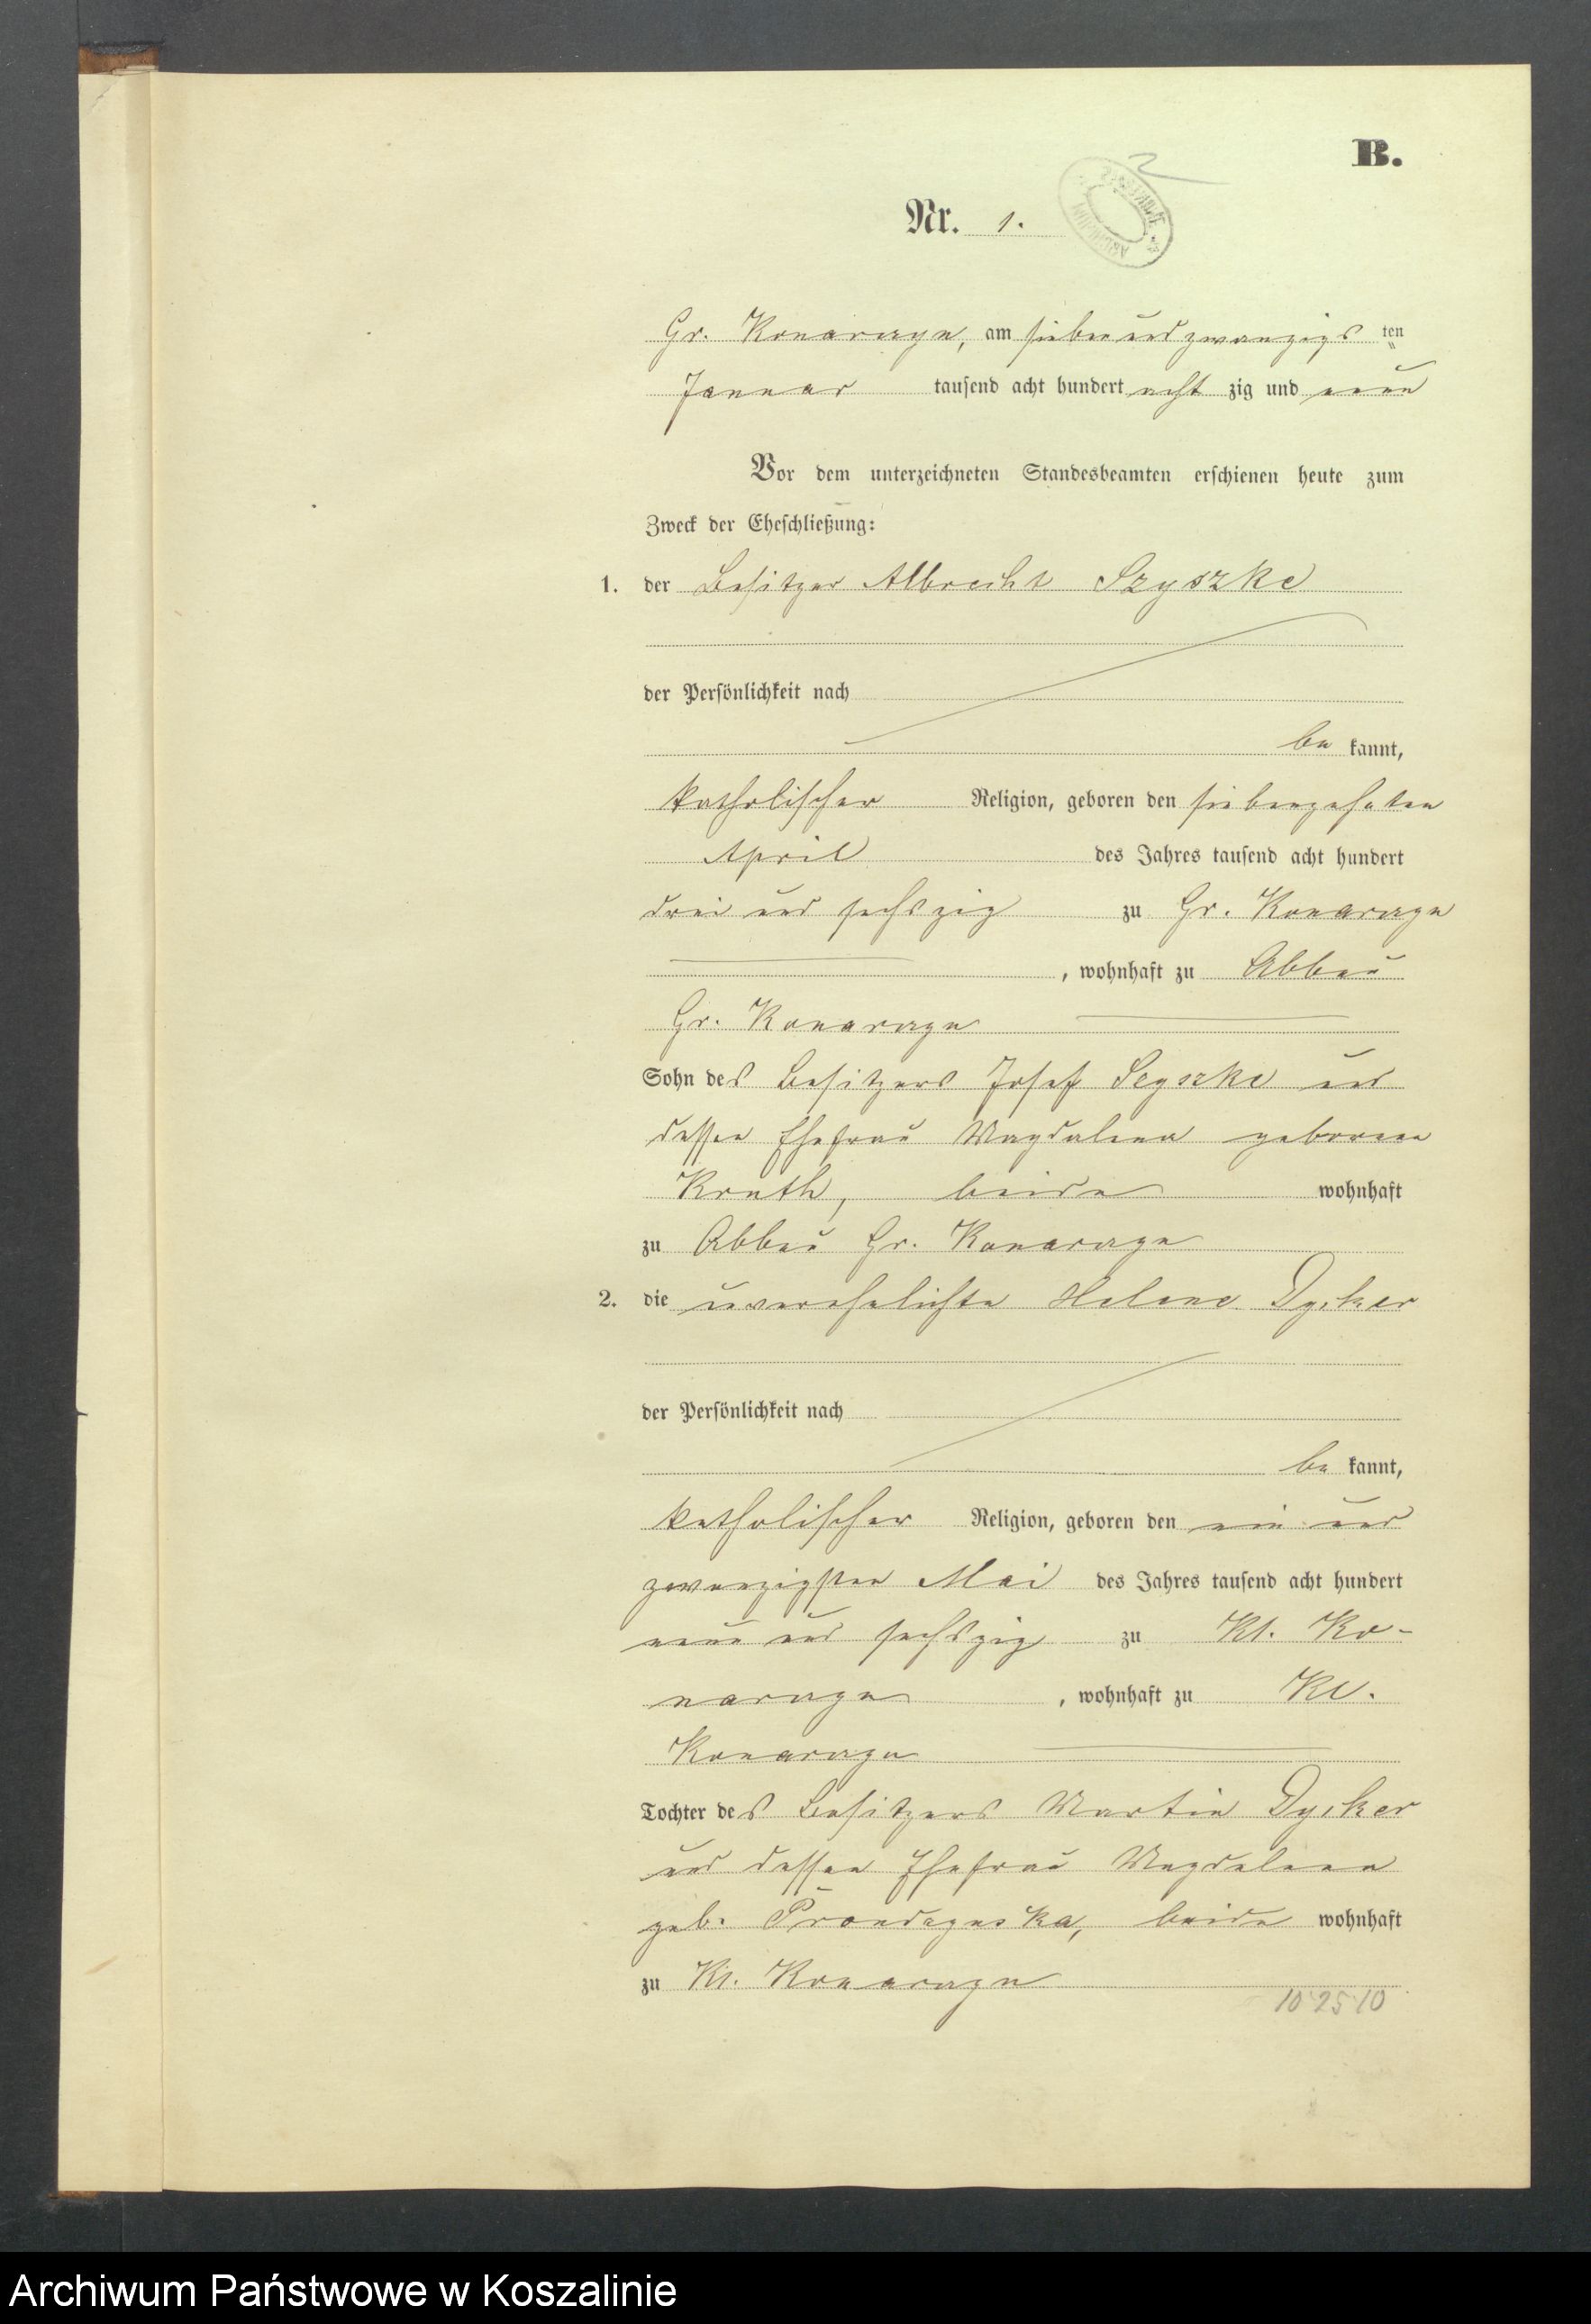 B.
Nr. 1.
Gr. Konarczyn, am sieben und zwanzigs ten
Januar tausend acht hundert acht zig und neun
Vor dem unterzeichneten Standesbeamten erschienen heute zum
Zweck der Eheschließung:
1. der Besitzer Albrecht Szyszke
der Persönlichkeit nach
be kannt,
katholischer Religion, geboren den siebenzehnten
April des Jahres tausend acht hundert
drei und sechszig zu Gr. Konarczyn
, wohnhaft zu Abbau
Gr. Konarczyn
Sohn des Besitzers Josef Szyszke und
dessen Ehefrau Magdalena geborene
beide wohnhaft
zu Abbau Gr. Konarczyn
2. die unverehelichte Helene
der Persönlichkeit nach
be kannt,
katholischer Religion, geboren den ein und
zwanzigsten Mai des Jahres tausend acht hundert
neun und sechszig zu Kl. Ko-
narczyn, wohnhaft zu Kl.
Konarczyn
Tochter des Besitzers Martin
und dessen Ehefrau Magdalena
geb. beide wohnhaft
zu Kl. Konarczyn
10 25 10
Archiwum Państwowe w Koszalinie